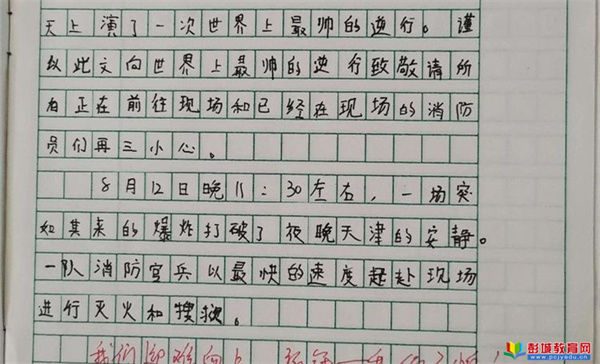 天上演了一次世界上最帅的逆行。谨
以此文向世界上最帅的逆行致敬请所
有正在前往现场和已经在现场的消防
员们再三小心。
8月12日晚11:30左右,一场突
如其来的爆炸打破了夜晚天津的安静。
一队消防官兵以最快的速度赶赴现场
进行灭火和搜救。
我们
彭城教育网
www.pcjyedu.cn